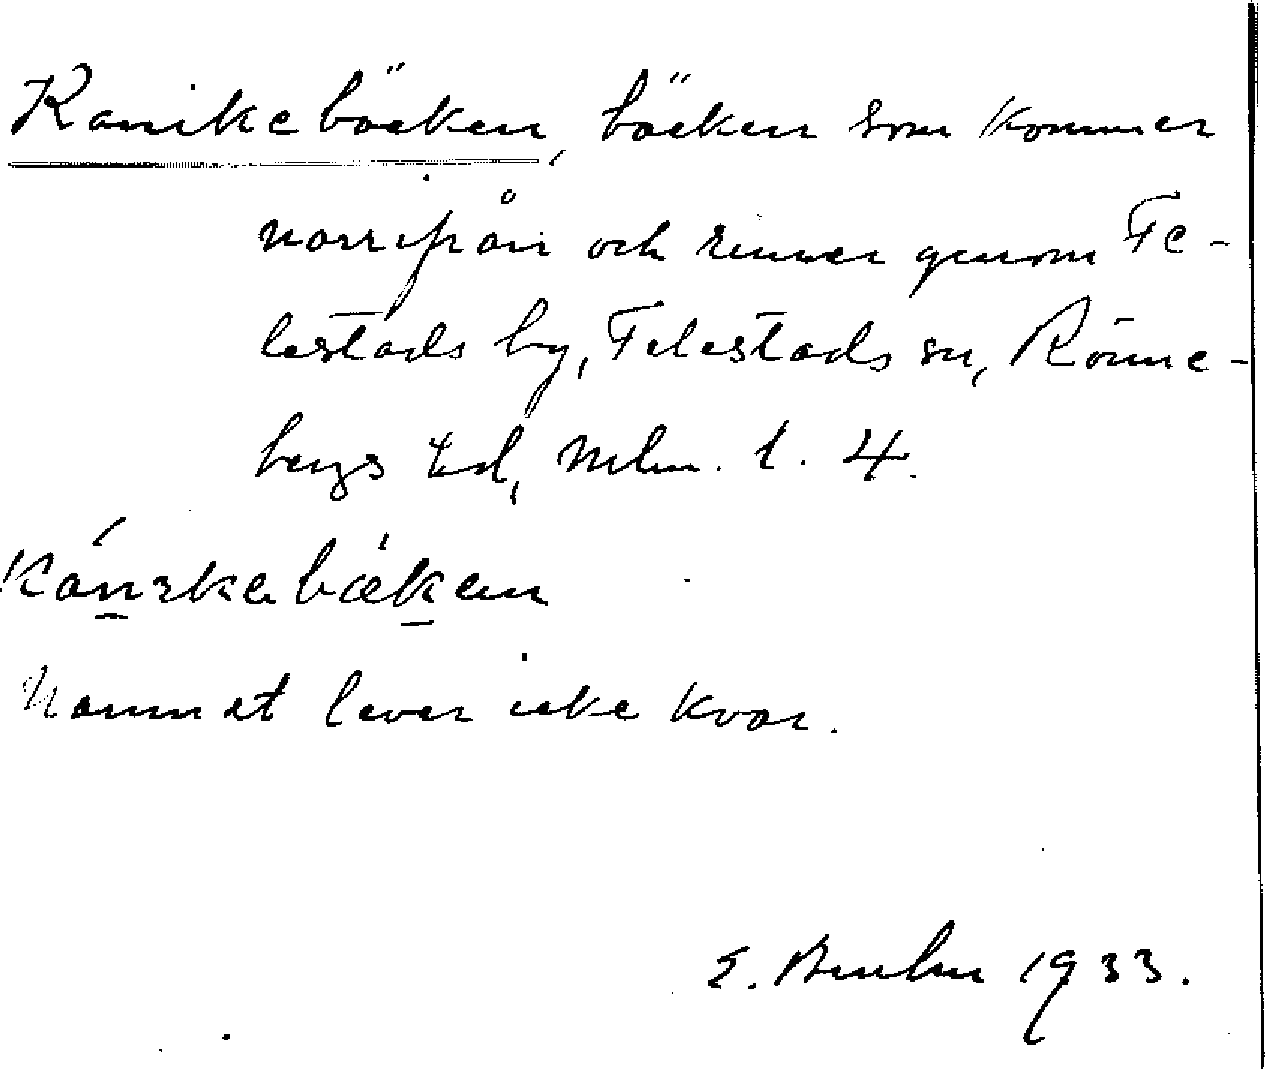 Kanikebäcken, bäcken som kommer
norrifrån och rinner genom Fe-
lestads by, Felestads sn, Rönne-
bergs hd, Mlm. l. 4.
Kánikabækan
Namnet lever icke kvar.
E. 1933.